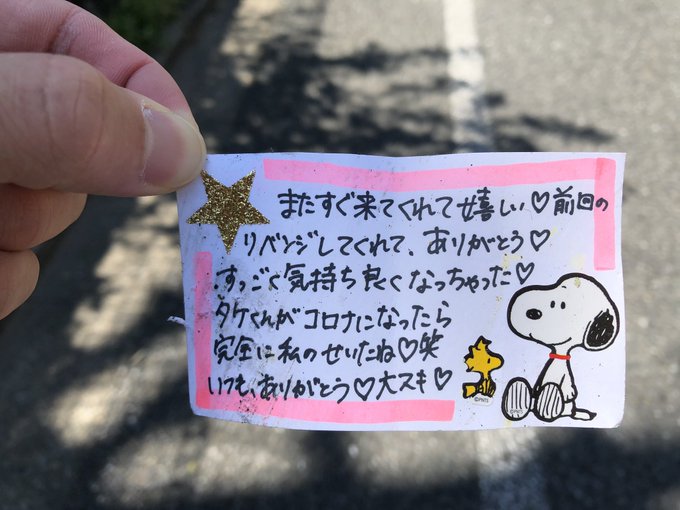 またすぐ来てくれて嬉しい♡前回の
リベンジしてくれて、ありがとう♡
すっごく気持ち良くなっちゃった♡
タケくんがコロナになったら
完全に私のせいだね♡笑
いつも、ありがとう♡大スキ♡
©PNTS